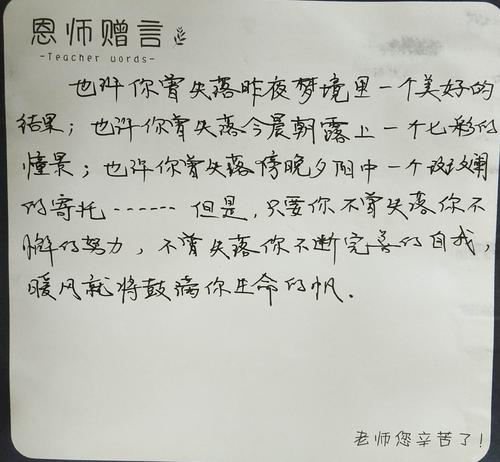 恩师赠言
-Teacher words-
也许你曾失落昨夜梦境里一个美好的
结果；也许你曾失落今晨朝露上一个七彩的
憧景；也许你曾失落傍晚夕阳中一个斑斓
的寄托……但是，只要你不曾失落你不
懈的努力，不曾失落你不断完善的自我，
暖风就将鼓满你生命的帆．
老师您辛苦了！